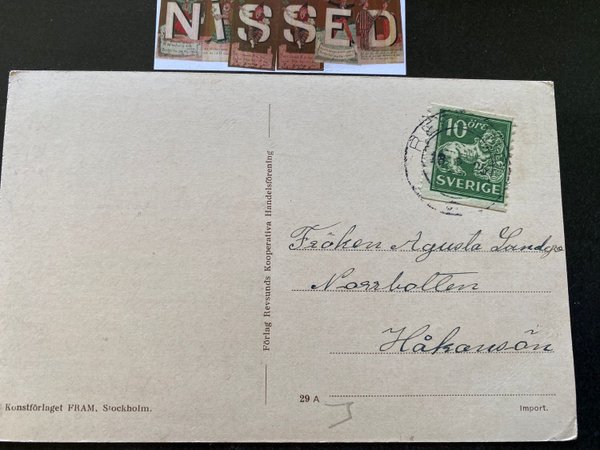 NISSED
10 ÖRE
SVERIGE
Fröken Agusta
Norrbotten
Håkansön
Förlag Revsunds Kooperativa Handelsförening
Konstförlaget FRAM, Stockholm.
29 A
Import.